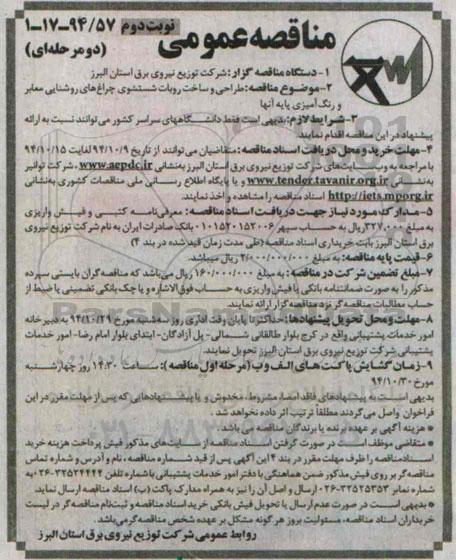 مناقصه عمومی
نوبت دوم ۹۴/۵۷-۱۷-۱
(دو مرحله‌ای)
۱- دستگاه مناقصه گزار: شرکت توزیع نیروی برق استان البرز
۲- موضوع مناقصه: طراحی و ساخت روبات شستشوی چراغ‌های روشنایی معابر
و رنگ آمیزی پایه آنها
۳- شرایط لازم: بدیهی است فقط دانشگاههای سراسر کشور می‌توانند نسبت به ارائه
پیشنهاد در این مناقصه اقدام نمایند.
۴- مهلت خرید و محل دریافت اسناد مناقصه: متقاضیان می‌توانند از تاریخ ۹۴/۱۰/۹ لغایت ۹۴/۱۰/۱۵
با مراجعه به وب‌سایت‌های شرکت توزیع نیروی برق استان البرز به‌نشانی www.aepdc.ir، شرکت توانیر
به‌نشانی www.tender.tavanir.org.ir و یا پایگاه اطلاع رسانی ملی مناقصات کشوری به‌نشانی
http://iets.mporg.ir اسناد مناقصه را مشاهده و اخذ نمایند.
۵- مدارک مورد نیاز جهت دریافت اسناد مناقصه: معرفی‌نامه کتبی و فیش واریزی
به مبلغ ۳۲۷،۰۰۰ ریال به حساب سپهر ۰۱۰۱۵۲۰۱۵۲۰۰۶ بانک صادرات ایران به نام شرکت توزیع نیروی
برق استان البرز بابت خریداری اسناد مناقصه (طی مدت زمان قید شده در بند ۴)
۶- قیمت پایه مناقصه: به مبلغ ۲/۰۰۰/۰۰۰/۰۰۰ ریال میباشد.
۷- مبلغ تضمین شرکت در مناقصه: به مبلغ ۱۶۰/۰۰۰/۰۰۰ ریال می‌باشد که مناقصه‌گران بایستی سپرده
مذکور را به صورت ضمانتنامه بانکی یا فیش واریزی به حساب فوق‌الاشاره و یا چک بانکی تضمینی یا ضبط از
حساب مطالبات مناقصه‌گر نزد مناقصه‌گزار ارائه نمایند.
۸- مهلت و محل تحویل پیشنهادها: حداکثر تا پایان وقت اداری روز سه‌شنبه مورخ ۹۴/۱۰/۲۹ به دبیرخانه
امور خدمات پشتیبانی واقع در کرج بلوار طالقانی شمالی- پل آزادگان- ابتدای بلوار امام رضا- امور خدمات
پشتیبانی شرکت توزیع نیروی برق استان البرز تحویل نمایند.
۹- زمان گشایش پاکت‌های الف و ب (مرحله اول مناقصه): ساعت ۱۴:۳۰ روز چهارشنبه
مورخ ۹۴/۱۰/۳۰
بدیهی است به پیشنهادهای فاقد امضا، مشروط، مخدوش و یا پیشنهادهایی که پس از مهلت مقرر در این
فراخوان واصل می‌گردند مطلقاً ترتیب اثر داده نخواهد شد.
* هزینه آگهی بر عهده برنده یا برندگان مناقصه می‌باشد.
* متقاضی موظف است در صورت گرفتن اسناد مناقصه از سایت‌های مذکور فیش پرداخت هزینه خرید
اسناد مناقصه را ظرف مهلت مقرر در بند ۴ این آگهی پس از قید شماره مناقصه، نام و آدرس و شماره تماس
مناقصه‌گر بر روی فیش مذکور ضمن هماهنگی با دفتر امور خدمات پشتیبانی با شماره تلفن ۳۲۵۲۴۴۴۴-۰۲۶ به
شماره نمابر ۳۲۵۲۵۳۵۳-۰۲۶ ارسال و اصل آن را نیز به همراه مدارک پاکت (ب) اسناد مناقصه ارسال نماید.
* بدیهی است در صورت عدم ارسال یا تحویل فیش بانکی خرید اسناد مناقصه و ثبت‌نام مناقصه‌گر در لیست
خریداران اسناد مناقصه، مسئولیت بروز هر گونه مشکل بر عهده شخص مناقصه‌گر می‌باشد.
روابط عمومی شرکت توزیع نیروی برق استان البرز